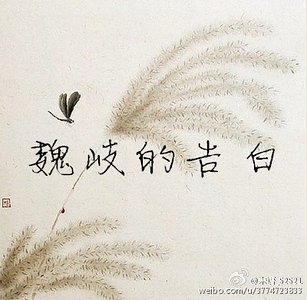 魏岐的告白
weibo.com/u/3774723833